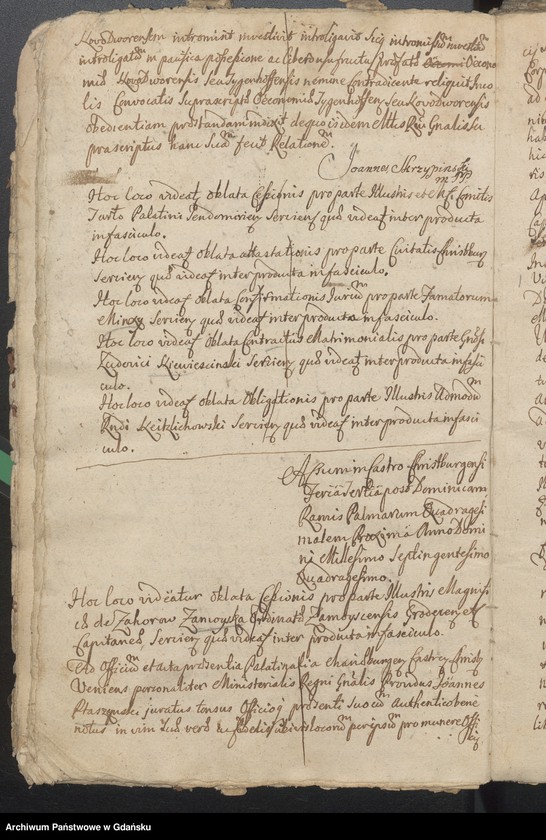 KovoDworensem intromisit investivit introligavit Sicq intromissum investitum
introligatum in pacifica possessione ac libero usufructu præfatæ Oecono
miæ KovoDworensis Seu Tygenhoffensis nemine Contradicente reliquit Inco
lis Convocatis Suprascriptæ Oeconomiæ Tygenhoffen Seu KovoDworensis
obedientiam præstandam indixit de quo isdem Mttis Rni Gnalis Su
prascriptus hanc Suam fecit Relationem.
Joannes Skrzypinski
mpp
Hoc loco videat oblata Cessionis pro parte Illustris et Mf. Comitis
Tarło Palatini Sendomirien Servien quæ videat inter producta
in fasciculo.
Hoc loco videat oblata attestationis pro parte Civitatis Christburg
Servien quæ videat inter producta in fasciculo.
Hoc loco videat oblata Confirmationis Jurium pro parte Famatorum
Servien quæ videat inter producta in fasciculo.
Hoc loco videat oblata Contractus Matrimonialis pro parte Gnosi
Ludovici Kiewiescinski Servien quæ videat inter producta in fasci
culo.
Hoc loco videat oblata Obligationis pro parte Illustris Admodum
Rndi Servien quæ videat inter producta in fasci
culo.
Assum in Castro Christburgensi
Feria Tertia post Dominicam
Ramis Palmarum Quadragesi
malem Proxima Anno Domi
ni Millesimo Septingentesimo
Quadragesimo.
Hoc loco videatur oblata Cessionis pro parte Illustris Magnifi
cæ de Zahorow Zamoyska Ordinatæ Zamoyscensis Grodecen etc
Capitaneæ, Servien quæ videat inter producta in fasciculo.
Ad Officium et acta præsentia Palatinalia Mariæburgen Castren Christb
Veniens personaliter Ministerialis Regni Gnalis Providus Joannes
Ptaszynski juratus tonsus Officioq præsenti Suo cum authentico bene
notus in vim Suæ veræ ac fidelis ubivis locorum per ipsum pro munere Offi
cij
Archiwum Państwowe w Gdańsku